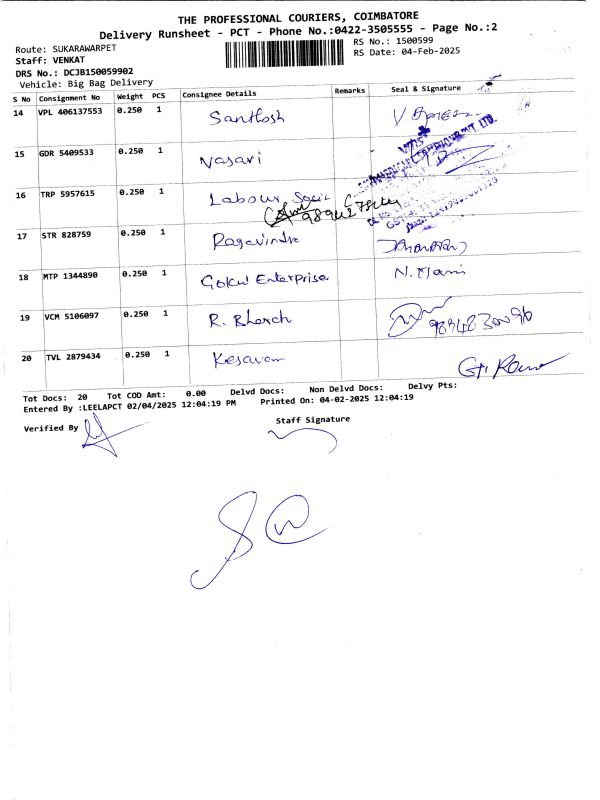 THE PROFESSIONAL COURIERS, COIMBATORE
Delivery Runsheet - PCT - Phone No.:0422-3505555 - Page No.:2
Route: SUKARAWARPET
RS No.: 1500599
Staff: VENKAT
RS Date: 04-Feb-2025
DRS No.: DCJB150059902
Vehicle: Big Bag Delivery
S No Consignment No Weight PCS Consignee Details Remarks Seal & Signature
14 VPL 406137553 0.250 1 Santhosh
15 GDR 5409533 0.250 1 Vasavi
16 TRP 5957615 0.250 1 Labour
17 STR 828759 0.250 1 Ragavindra
18 MTP 1344890 0.250 1 Gokul Enterprise N. Mani
19 VCM 5106097 0.250 1 R. Bharch
20 TVL 2879434 0.250 1 Kesavan
Tot Docs: 20 Tot COD Amt: 0.00 Delvd Docs: Non Delvd Docs: Delvy Pts:
Entered By :LEELAPCT 02/04/2025 12:04:19 PM Printed On: 04-02-2025 12:04:19
Verified By
Staff Signature